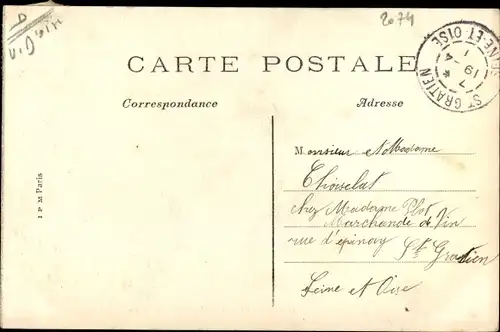 2074
CARTE POSTALE
Correspondance
Adresse
ST GRATIEN
SEINE ET OISE
Monsieur et Madame
Thoiselat
chez Madame Plot
Marchande de Vin
rue d'epinay St Gratien
Seine et Oise
I P M Paris